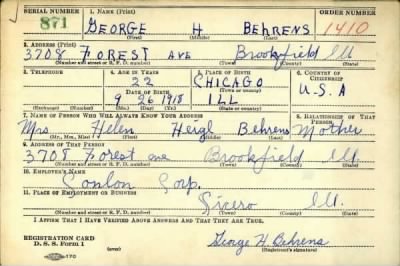 SERIAL NUMBER 1. NAME (Print) ORDER NUMBER
871 GEORGE H BEHRENS 1410
(First) (Middle) (Last)
2. ADDRESS (Print)
3708 FOREST AVE Brookfield Ill
(Number and street or R. F. D. number) (Town) (County) (State)
3. TELEPHONE 4. AGE IN YEARS 5. PLACE OF BIRTH 6. COUNTRY OF CITIZENSHIP
22 CHICAGO
DATE OF BIRTH (Town or county) U.S.A
9 26 1918 ILL
(Exchange) (No.) (Mo.) (Day) (Yr.) (State or country)
7. NAME OF PERSON WHO WILL ALWAYS KNOW YOUR ADDRESS 8. RELATIONSHIP OF THAT PERSON
Mrs Helen Behrens Mother
(Mr., Mrs., Miss) (First) (Middle) (Last)
9. ADDRESS OF THAT PERSON
3708 Forest ave Brookfield Ill.
(Number and street or R. F. D. number) (Town) (County) (State)
10. EMPLOYER'S NAME
Corp.
11. PLACE OF EMPLOYMENT OR BUSINESS
Cicero Ill.
(Number and street or R. F. D. number) (Town) (County) (State)
I AFFIRM THAT I HAVE VERIFIED ABOVE ANSWERS AND THAT THEY ARE TRUE.
REGISTRATION CARD
D. S. S. Form 1 (over) George H. Behrens
(Registrant's signature)